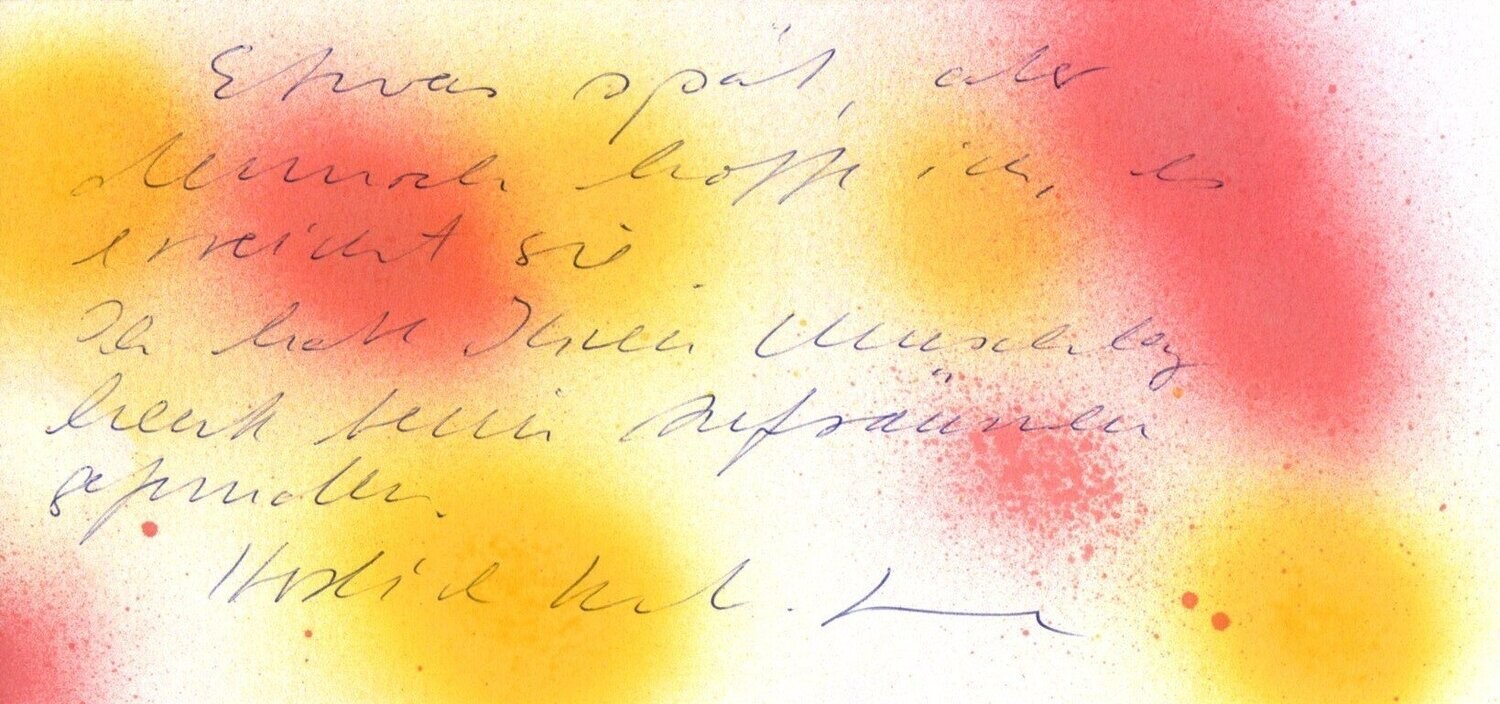 Etwas spät, aber
dennoch hoffe ich, es
erreicht sie
Ich hatte Ihren Umschlag
heute beim Aufräumen
gefunden.
Herzlich